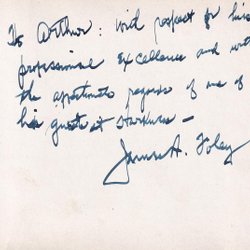 To Arthur: with respect for his
professional excellence and with
the affectionate regards of one of
his guests at Harkness —
James A. Foley